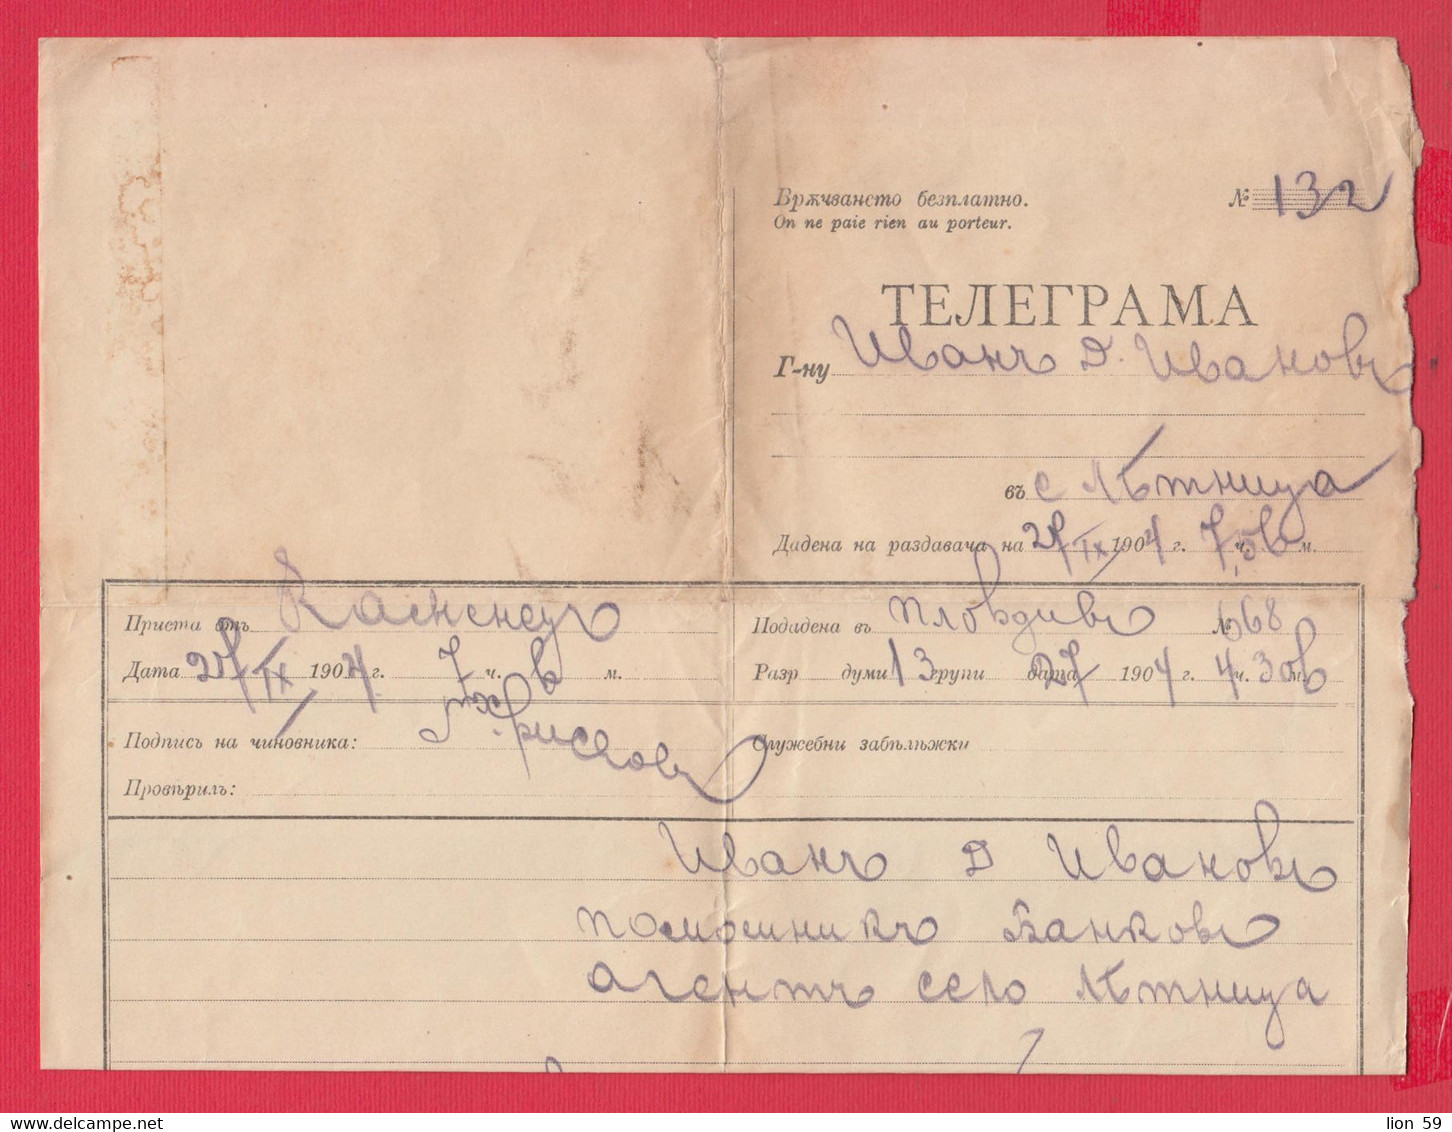 Врѫчването безплатно.
№ 132
On ne paie rien au porteur.
ТЕЛЕГРАМА
Г-ну Иванъ Д. Ивановъ
въ с Лѣтница
Дадена на раздавача на 27/IX 1904 г. 7 ч. м.
Приета отъ
Подадена въ Пловдивъ № 668
Дата 27/IX 1904 г. 7 ч. м.
Разр думи 13 групи дата 27 1904 г. 4 ч. 30 м.
Подпись на чиновника: Христовъ
Служебни забѣлѣжки
Провѣрилъ:
Иванъ Д Ивановъ
помошникъ Банковъ
агентъ село Лѣтница
lion 59